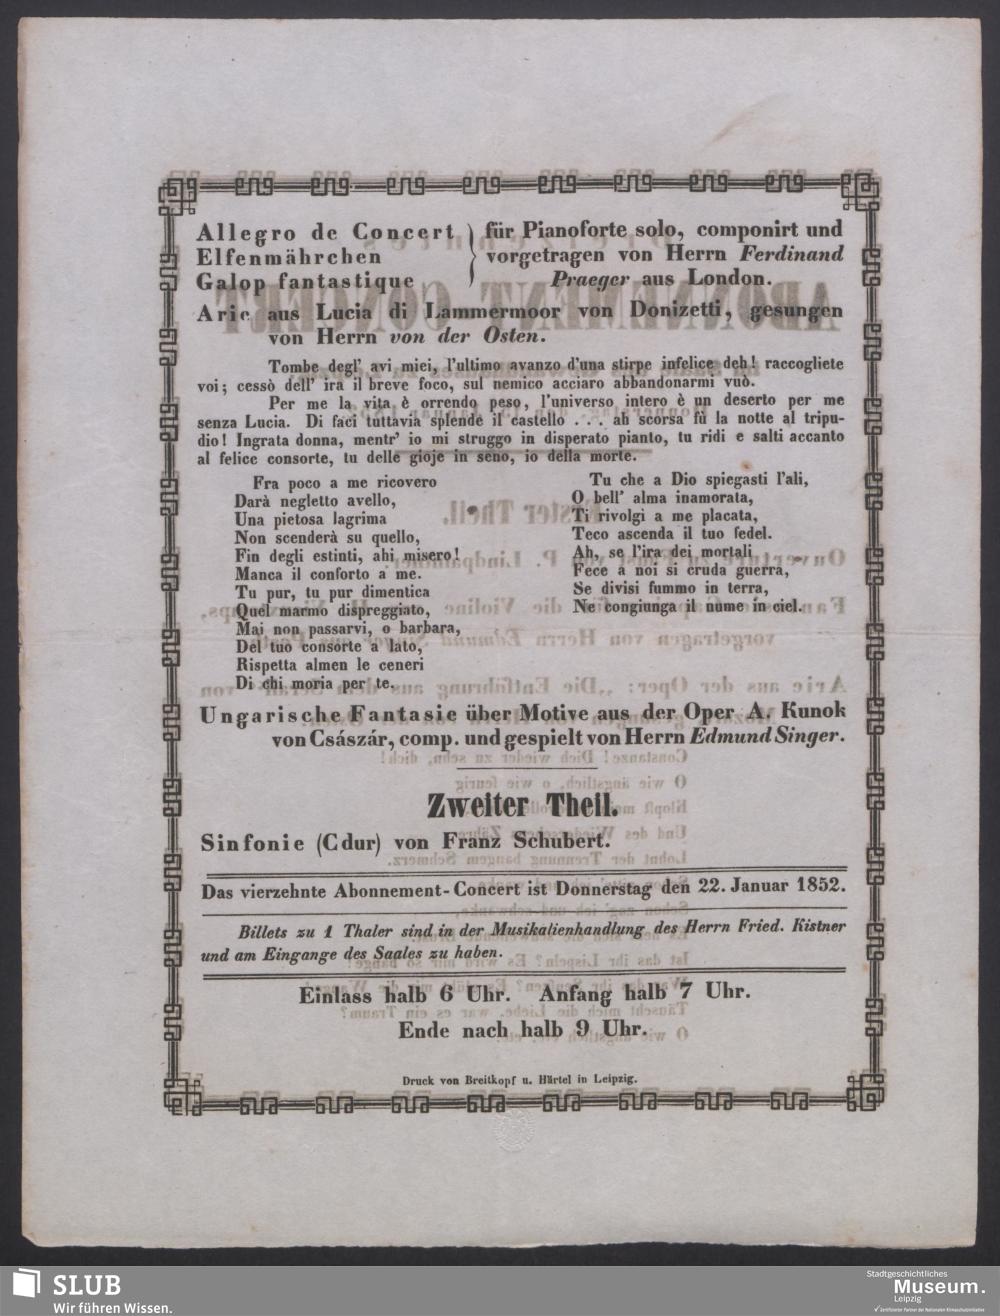 Allegro de Concert
Elfenmährchen
Galop fantastique
für Pianoforte solo, componirt und
vorgetragen von Herrn Ferdinand
Praeger aus London.
Arie aus Lucia di Lammermoor von Donizetti, gesungen
von Herrn von der Osten.
Tombe degl' avi miei, l'ultimo avanzo d'una stirpe infelice deh! raccogliete
voi; cessò dell' ira il breve foco, sul nemico acciaro abbandonarmi vuò.
Per me la vita è orrendo peso, l'universo intero è un deserto per me
senza Lucia. Di faci tuttavia splende il castello . . . ah scorsa fù la notte al tripu-
dio! Ingrata donna, mentr' io mi struggo in disperato pianto, tu ridi e salti accanto
al felice consorte, tu delle gioje in seno, io della morte.
Fra poco a me ricovero
Darà negletto avello,
Una pietosa lagrima
Non scenderà su quello,
Fin degli estinti, ahi misero!
Manca il conforto a me.
Tu pur, tu pur dimentica
Quel marmo dispreggiato,
Mai non passarvi, o barbara,
Del tuo consorte a lato,
Rispetta almen le ceneri
Di chi moria per te.
Tu che a Dio spiegasti l'ali,
O bell' alma inamorata,
Ti rivolgi a me placata,
Teco ascenda il tuo fedel.
Ah, se l'ira dei mortali
Fece a noi si cruda guerra,
Se divisi fummo in terra,
Ne congiunga il nume in ciel.
Ungarische Fantasie über Motive aus der Oper A. Kunok
von Császár, comp. und gespielt von Herrn Edmund Singer.
Zweiter Theil.
Sinfonie (C dur) von Franz Schubert.
Das vierzehnte Abonnement-Concert ist Donnerstag den 22. Januar 1852.
Billets zu 1 Thaler sind in der Musikalienhandlung des Herrn Fried. Kistner
und am Eingange des Saales zu haben.
Einlass halb 6 Uhr. Anfang halb 7 Uhr.
Ende nach halb 9 Uhr.
Druck von Breitkopf u. Härtel in Leipzig.
SLUB
Wir führen Wissen.
Stadtgeschichtliches
Museum.
Leipzig
Zertifizierter Partner der Nationalen Klimaschutzinitiative